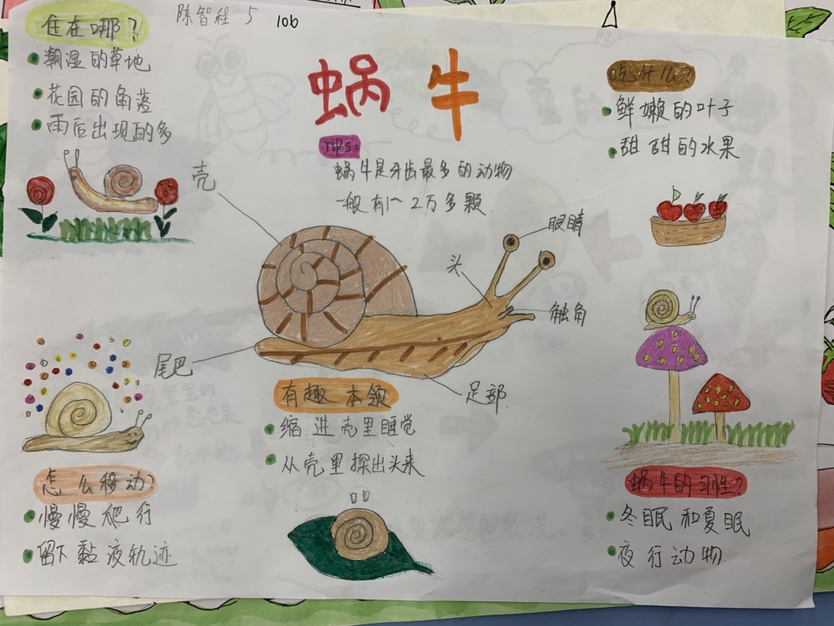 陈智程 5 106
住在哪？
潮湿的草地
花园的角落
雨后出现的多
蜗牛
TIPS:
蜗牛是牙齿最多的动物
一般有1~2万多颗
吃什么？
鲜嫩的叶子
甜甜的水果
壳
眼睛
头
触角
尾巴
足部
有趣本领
缩进壳里睡觉
从壳里探出头来
怎么移动？
慢慢爬行
留下黏液轨迹
蜗牛的习性？
冬眠和夏眠
夜行动物